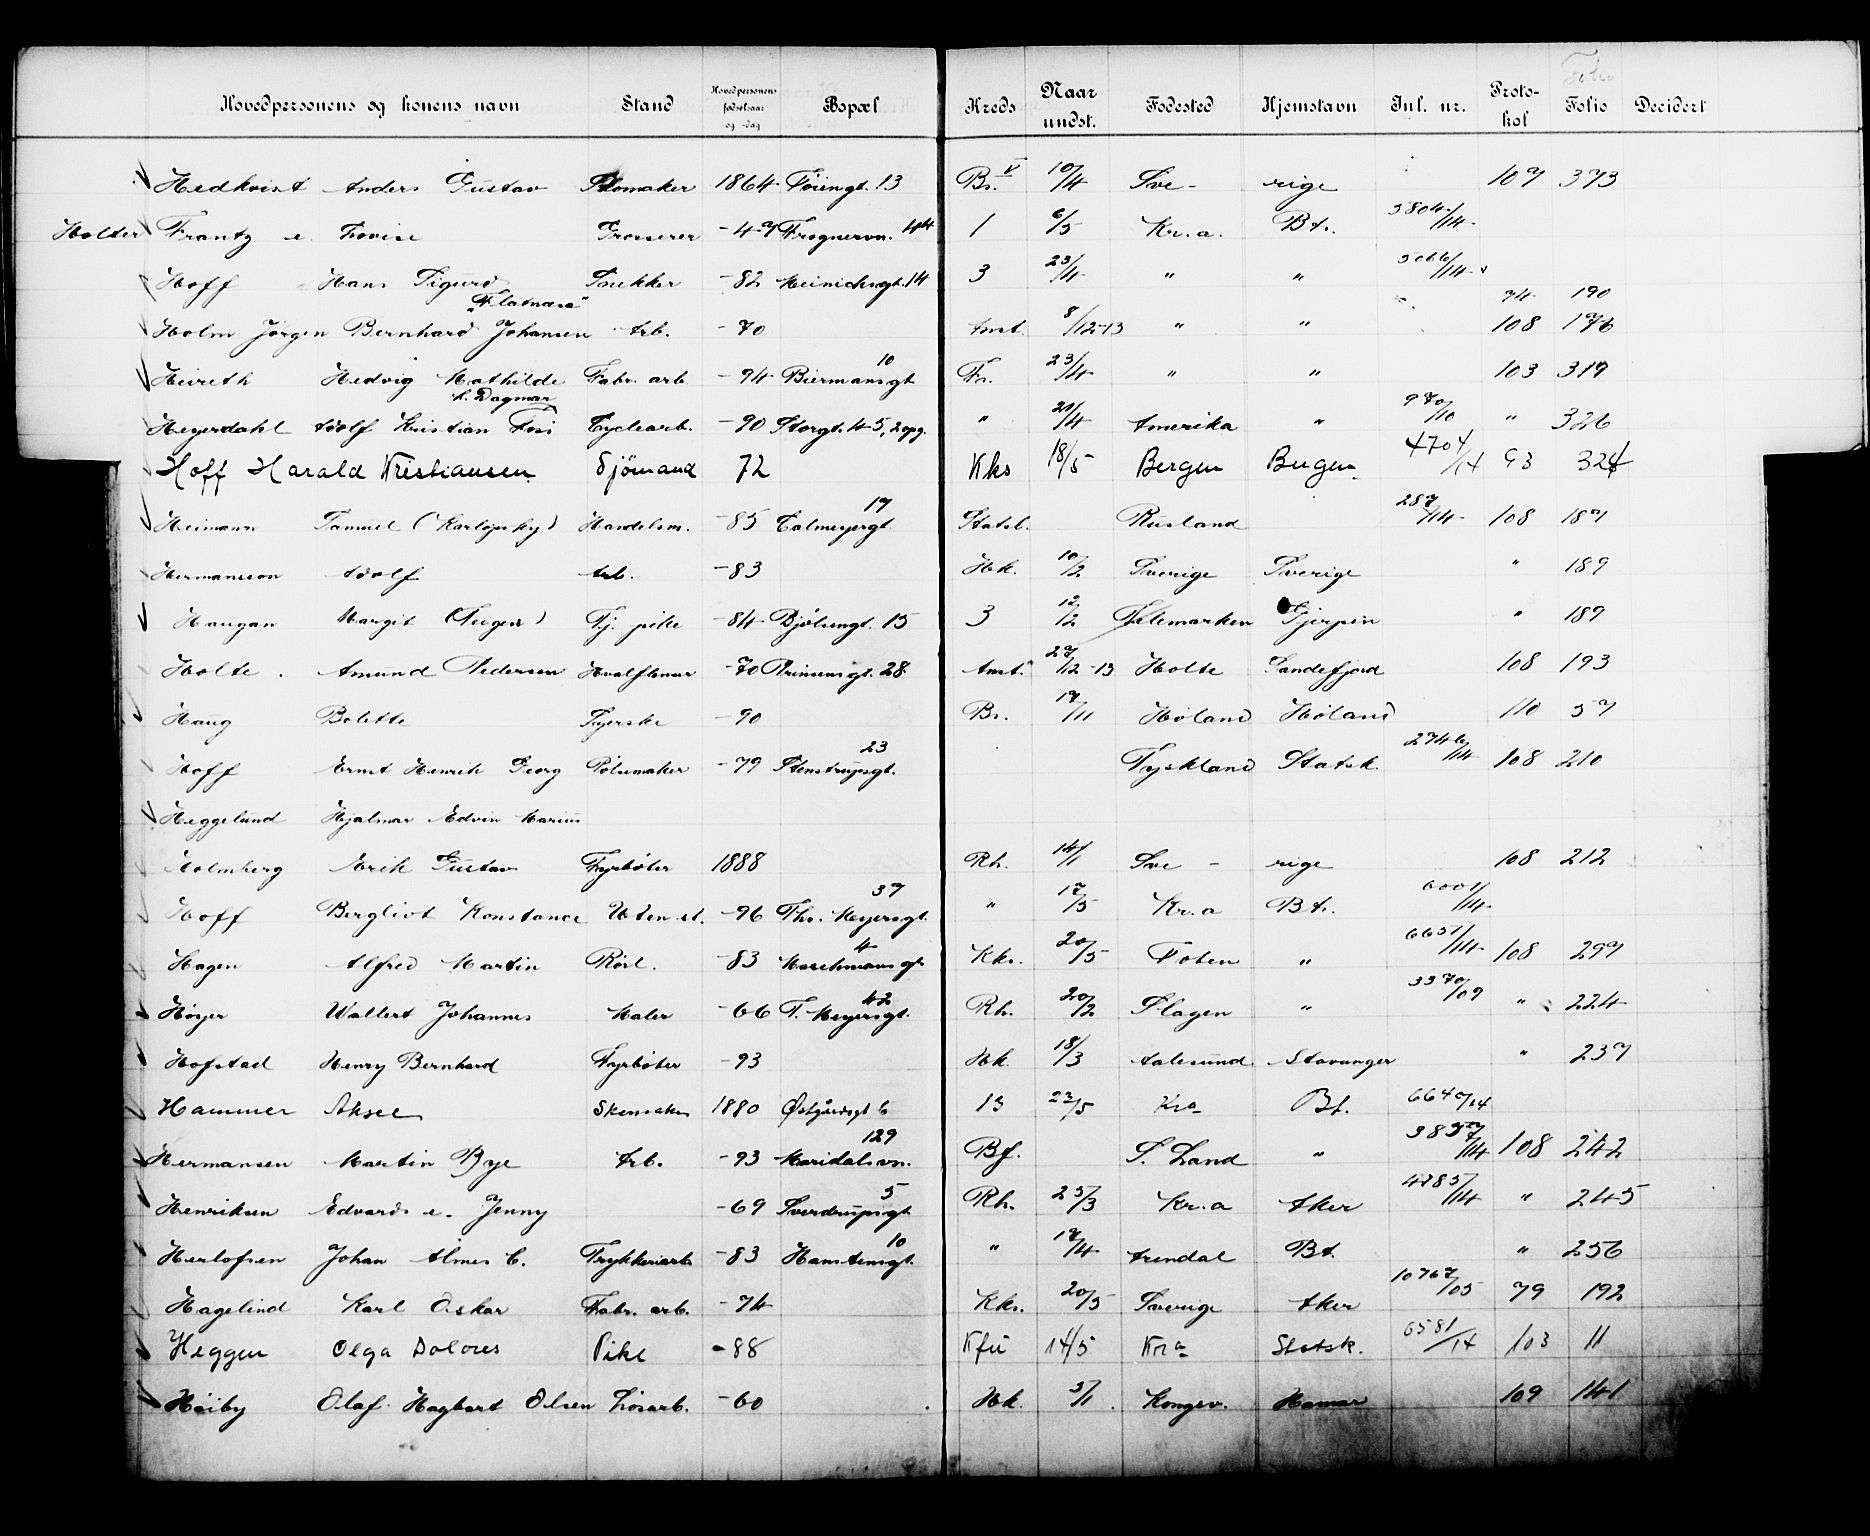 Hovedpersonens og konens navn Stand Hovedpersonens fødselsaar og -dag Bopæl Kreds Naar undst. Fødested Hjemstavn Jul. nr. Protokol Folio Decidert
Hedkvist Anders Gustav 1864 Tøiengt. 13 Bs. V 10/4 Sve- rige 107 373
Holter Frantz e. Lovise Grosserer -47 Frognervn. 44 1 6/5 Kr.a. Bt. 3804/14
Hoff Hans Sigurd Snekker -82 14 3 23/4 " "
"Flatnæsa" 74 190
Holm Jørgen Bernhard Johansen Arb. -70 Amt. 8/12-13 " " 108 176
Heireth Hedvig Mathilde Fabr. arb. -94 Biermansgt. 10 Fr. 23/4 " " 103 319
h. Dagmar
Heyerdahl Adolf Kristian Foss Cyclearb. -90 Storgt. 45, 2opg. " 21/4 Amerika " 970/10 " 326
Hoff Harald Kristiansen Sjömand 72 Kks 18/5 Bergen Bergen 4704/14 93 324
Heimann Samuel (Karlopsky) Handelsm. -85 Calmeyergt. 17 Statsl. Rusland 287/14 108 187
Hermansson Adolf Arb. -83 Hk. 10/2 Sverige Sverige " 189
Haugan Margit Tj. pike -84 Bjølsengt. 15 3 12/2 Telemarken Gjerpen " 189
Holte Amund Pedersen Hvalfanger -70 Prinsensgt. 28 Amt. 27/12-13 Holte Sandefjord 108 193
Haug Bolette Syerske -90 Bs. 17/11 Høland Høland 110 57
Hoff Ernst Henrik Georg Pølsemaker -79 Stenstrupsgt. 23 Tyskland Statsk. 2746/14 108 210
Heggelund Hjalmar Edvin Marius
Holmberg Erik Gustav Fyrbøter 1888 Rh. 14/1 Sve - rige 108 212
Hoff Bergliot Konstance Uten st. -96 Th. Meyersgt. 37 " 17/5 Kr.a Bt. 6001/14
Hagen Alfred Martin Rørl. -83 Markmansgt. 4 Kks. 20/5 Toten " 6657/14 108 297
Høyer Wallert Johannes Maler -66 T. Meyersgt. 42 Rh. 20/2 Slagen " 3370/09 " 224
Hofstad Henry Bernhard Fyrbøter -93 Hk. 18/3 Aalesund Stavanger " 237
Hammer Aksel Skomaker 1880 Østgårdsgt 6 13 23/5 Kra Bt. 6640/14
Hermansen Martin Bye Arb. -93 Maridalsvn. 129 Bf. S. Land " 108 242
Henriksen Edvard e. Jenny -69 Sverdrupsgt. 5 Rh. 25/3 Kr.a Aker 4785/14 " 245
Herlofsen Johan Almer C. Trykkeriarb. -83 Hamstensgt. 10 " 17/4 Arendal Bt. " 256
Hagelind Karl Oskar Fabr. arb. -74 Kks. 20/5 Sverige Aker 10767/05 79 192
Heggen Olga Dolores Pike -88 Kfu 14/5 Kra Statsk. 6581/14 103 11
Høiby Olaf Hagbart Olsen Løsarb. -60 Hk. 5/1 Kongsv. Hamar 109 141